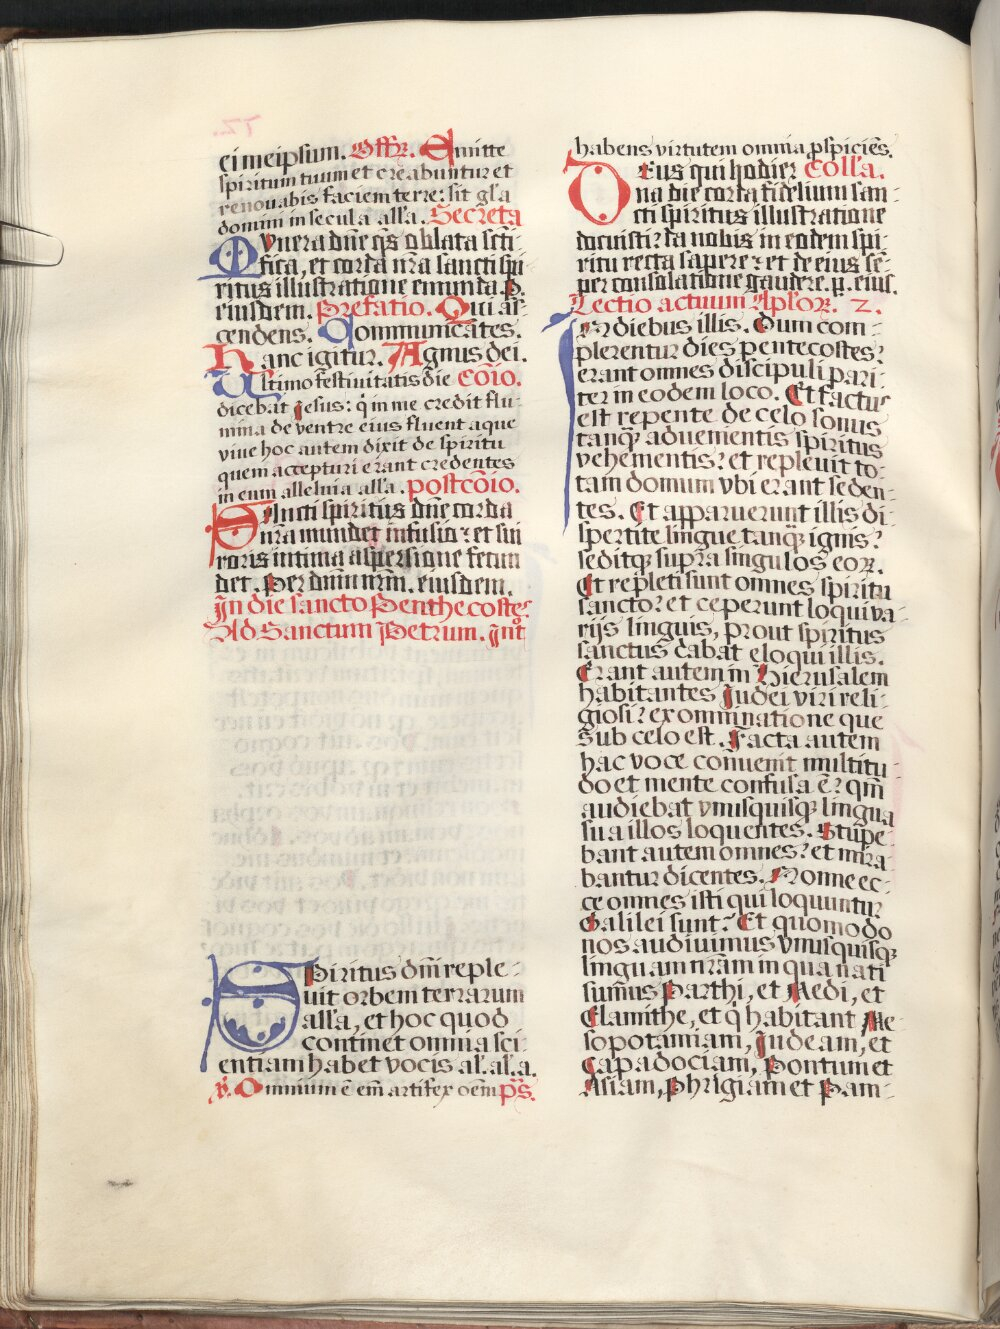 ei meipsum. Offr̄. Emitte
spiritum tuum et creabuntur et
renouabis faciem terre: sit gl̄a
domini in secula all'a. Secreta
Munera dn̄e q̄s oblata sc̄ti-
fica, et corda nr̄a sancti spi
ritus illustratione emunda. P.
eiusdem. Prefatio. Qui as-
cendens. Communicātes.
Hanc igitur. Agnus dei.
Ultimo festiuitatis die Cōio.
dicebat iesus: q̄ in me credit flu-
mina de ventre eius fluent aque
viue hoc autem dixit de spiritu
quem accepturi erant credentes
in eum alleluia all'a. postcōio.
Sancti spiritus dn̄e corda
nr̄a mundet infusio: et sui
roris intima aspersione fecun
det. Per dn̄m nr̄m. eiusdem.
In die sancto Penthecostes.
Ad Sanctum Petrum. Int̊
Spiritus dn̄i reple-
uit orbem terrarum
all'a, et hoc quod
continet omnia sci-
entiam habet vocis al'. al'. a.
v. Omnium ē em̄ artifex oēm ps̄.
habens virtutem omnia pspiciēs.
Deus qui hodier Coll'a.
na die corda fidelium san-
cti spiritus illustratione
docuisti: da nobis in eodem spi-
ritu recta sapere: et de eius sē-
per consolatione gaudere. p. eius.
Lectio actuum Apl'oꝝ. 2.
In diebus illis. Dum com-
plerentur dies pentecostes:
erant omnes discipuli pari-
ter in eodem loco. Et factus
est repente de celo sonus
tanq̄ aduenientis spiritus
vehementis: et repleuit to-
tam domum vbi erant seden-
tes. Et apparuerunt illis di-
spertite lingue tanq̄ ignis:
seditq; supra singulos eoꝝ.
Et repleti sunt omnes spiritu
sancto: et ceperunt loqui va-
rijs linguis, prout spiritus
sanctus dabat eloqui illis.
Erant autem in Hierusalem
habitantes Iudei viri reli-
giosi: ex omni natione que
sub celo est. Facta autem
hac voce conuenit multitu
do et mente confusa ē: qm̄
audiebat vnusquisq; lingua
sua illos loquentes. Stupe
bant autem omnes: et mira
bantur dicentes. Nonne ec-
ce omnes isti qui loquuntur
Galilei sunt? Et quomodo
nos audiuimus vnusquisq;
linguam nr̄am in qua nati
sumus Parthi, et Medi, et
Elamithe, et q̄ habitant Me-
sopotamiam, Iudeam, et
Capadociam, Pontum et
Asiam, Phrigiam et Pam-